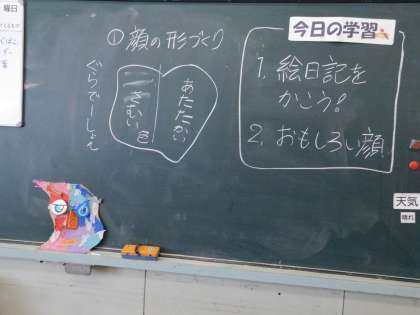 曜日
今日の学習
1. 絵日記を
かこう!
2. おもしろい顔
① 顔の形づくり
あたたかい
さむい色
ぐらでーしょん
天気
晴れ